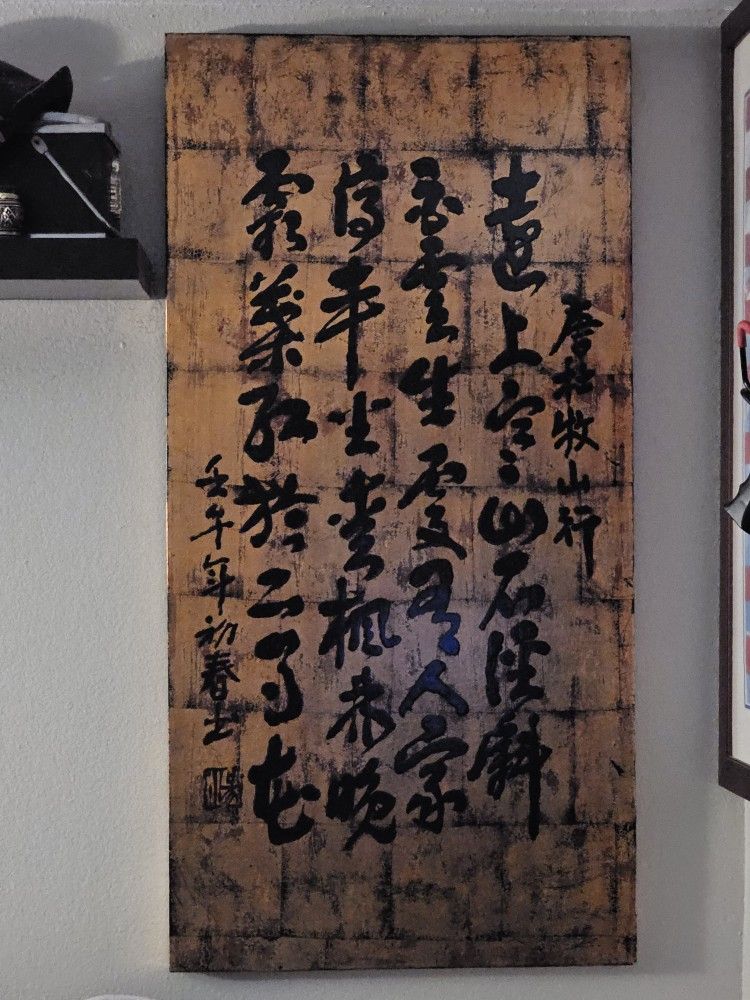 唐杜牧山行
遠上寒山石徑斜
白雲生處有人家
停車坐愛楓林晚
霜葉紅於二月花
壬午年初春